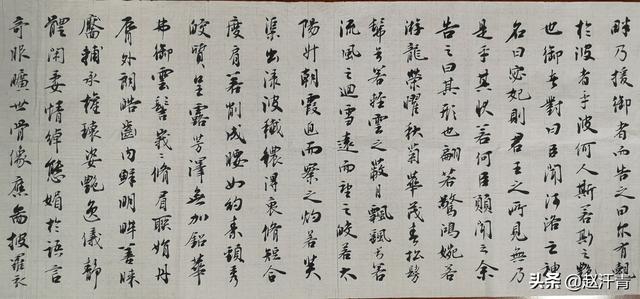 畔乃援御者而告之曰尔有覿
於彼者乎彼何人斯若斯之艷
也御者對曰臣聞河洛之神
名曰宓妃則君王之所見無乃
是乎其狀若何臣願聞之余
告之曰其形也翩若驚鴻婉若
游龍榮曜秋菊華茂春松髣
髴兮若輕雲之蔽月飄颻兮若
流風之迴雪遠而望之皎若太
陽升朝霞迫而察之灼若芙
渠出淥波穠纖得衷脩短合
度肩若削成腰如約素頸秀
皎質呈露芳澤無加鉛華
弗御雲髻峩峩脩眉聯娟丹
脣外朗皓齒內鮮明眸善睞
靨輔承權瓌姿艷逸儀靜
體閑柔情綽態媚於語言
奇服曠世骨像應圖披羅衣
头条 @赵汗青